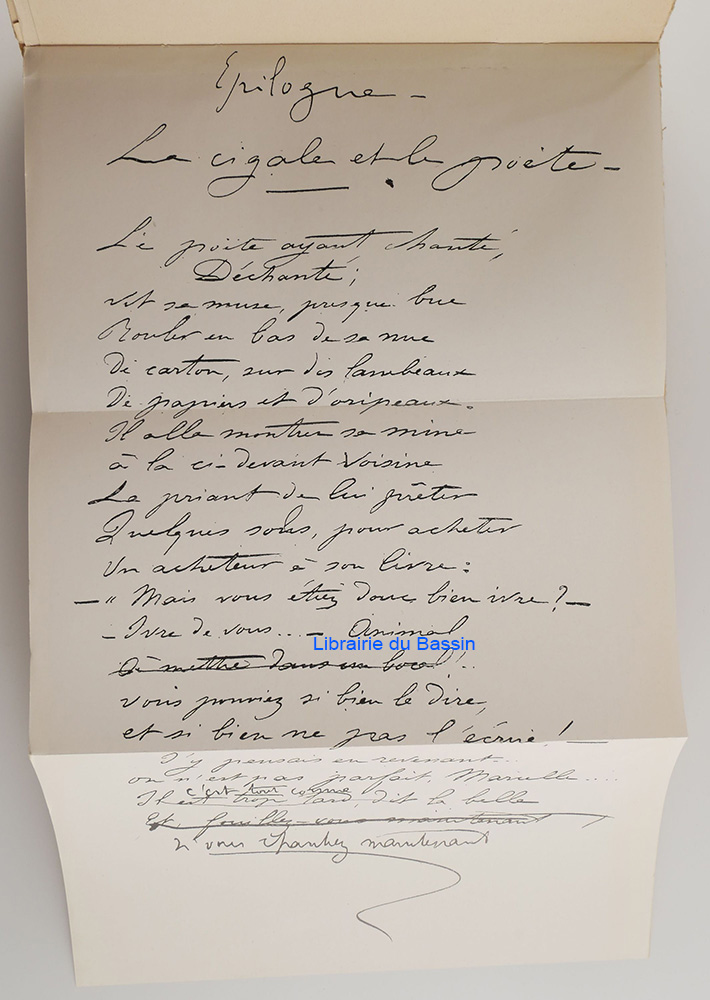 Epilogue —
La cigale et le poète —
Le poète ayant chanté,
Déchanté ;
Vit sa muse, presque bue
Rouler en bas de sa nue
De carton, sur des lambeaux
De papiers et d'oripeaux.
Il alla montrer sa mine
à la ci-devant Voisine
La priant de lui prêter
Quelques sous, pour acheter
Un acheteur à son livre :
— " Mais vous étiez donc bien ivre ? —
— Ivre de vous... — Animal
Librairie du Bassin
à mettre dans un bocal !..
vous pouviez si bien le dire,
et si bien ne pas l'écrire ! —
J'y pensais en revenant...
on n'est pas parfait, Marcelle ....
c'est tout comme
Il est trop tard, dit la belle
Et, fouillez-vous maintenant
Si vous chantiez maintenant